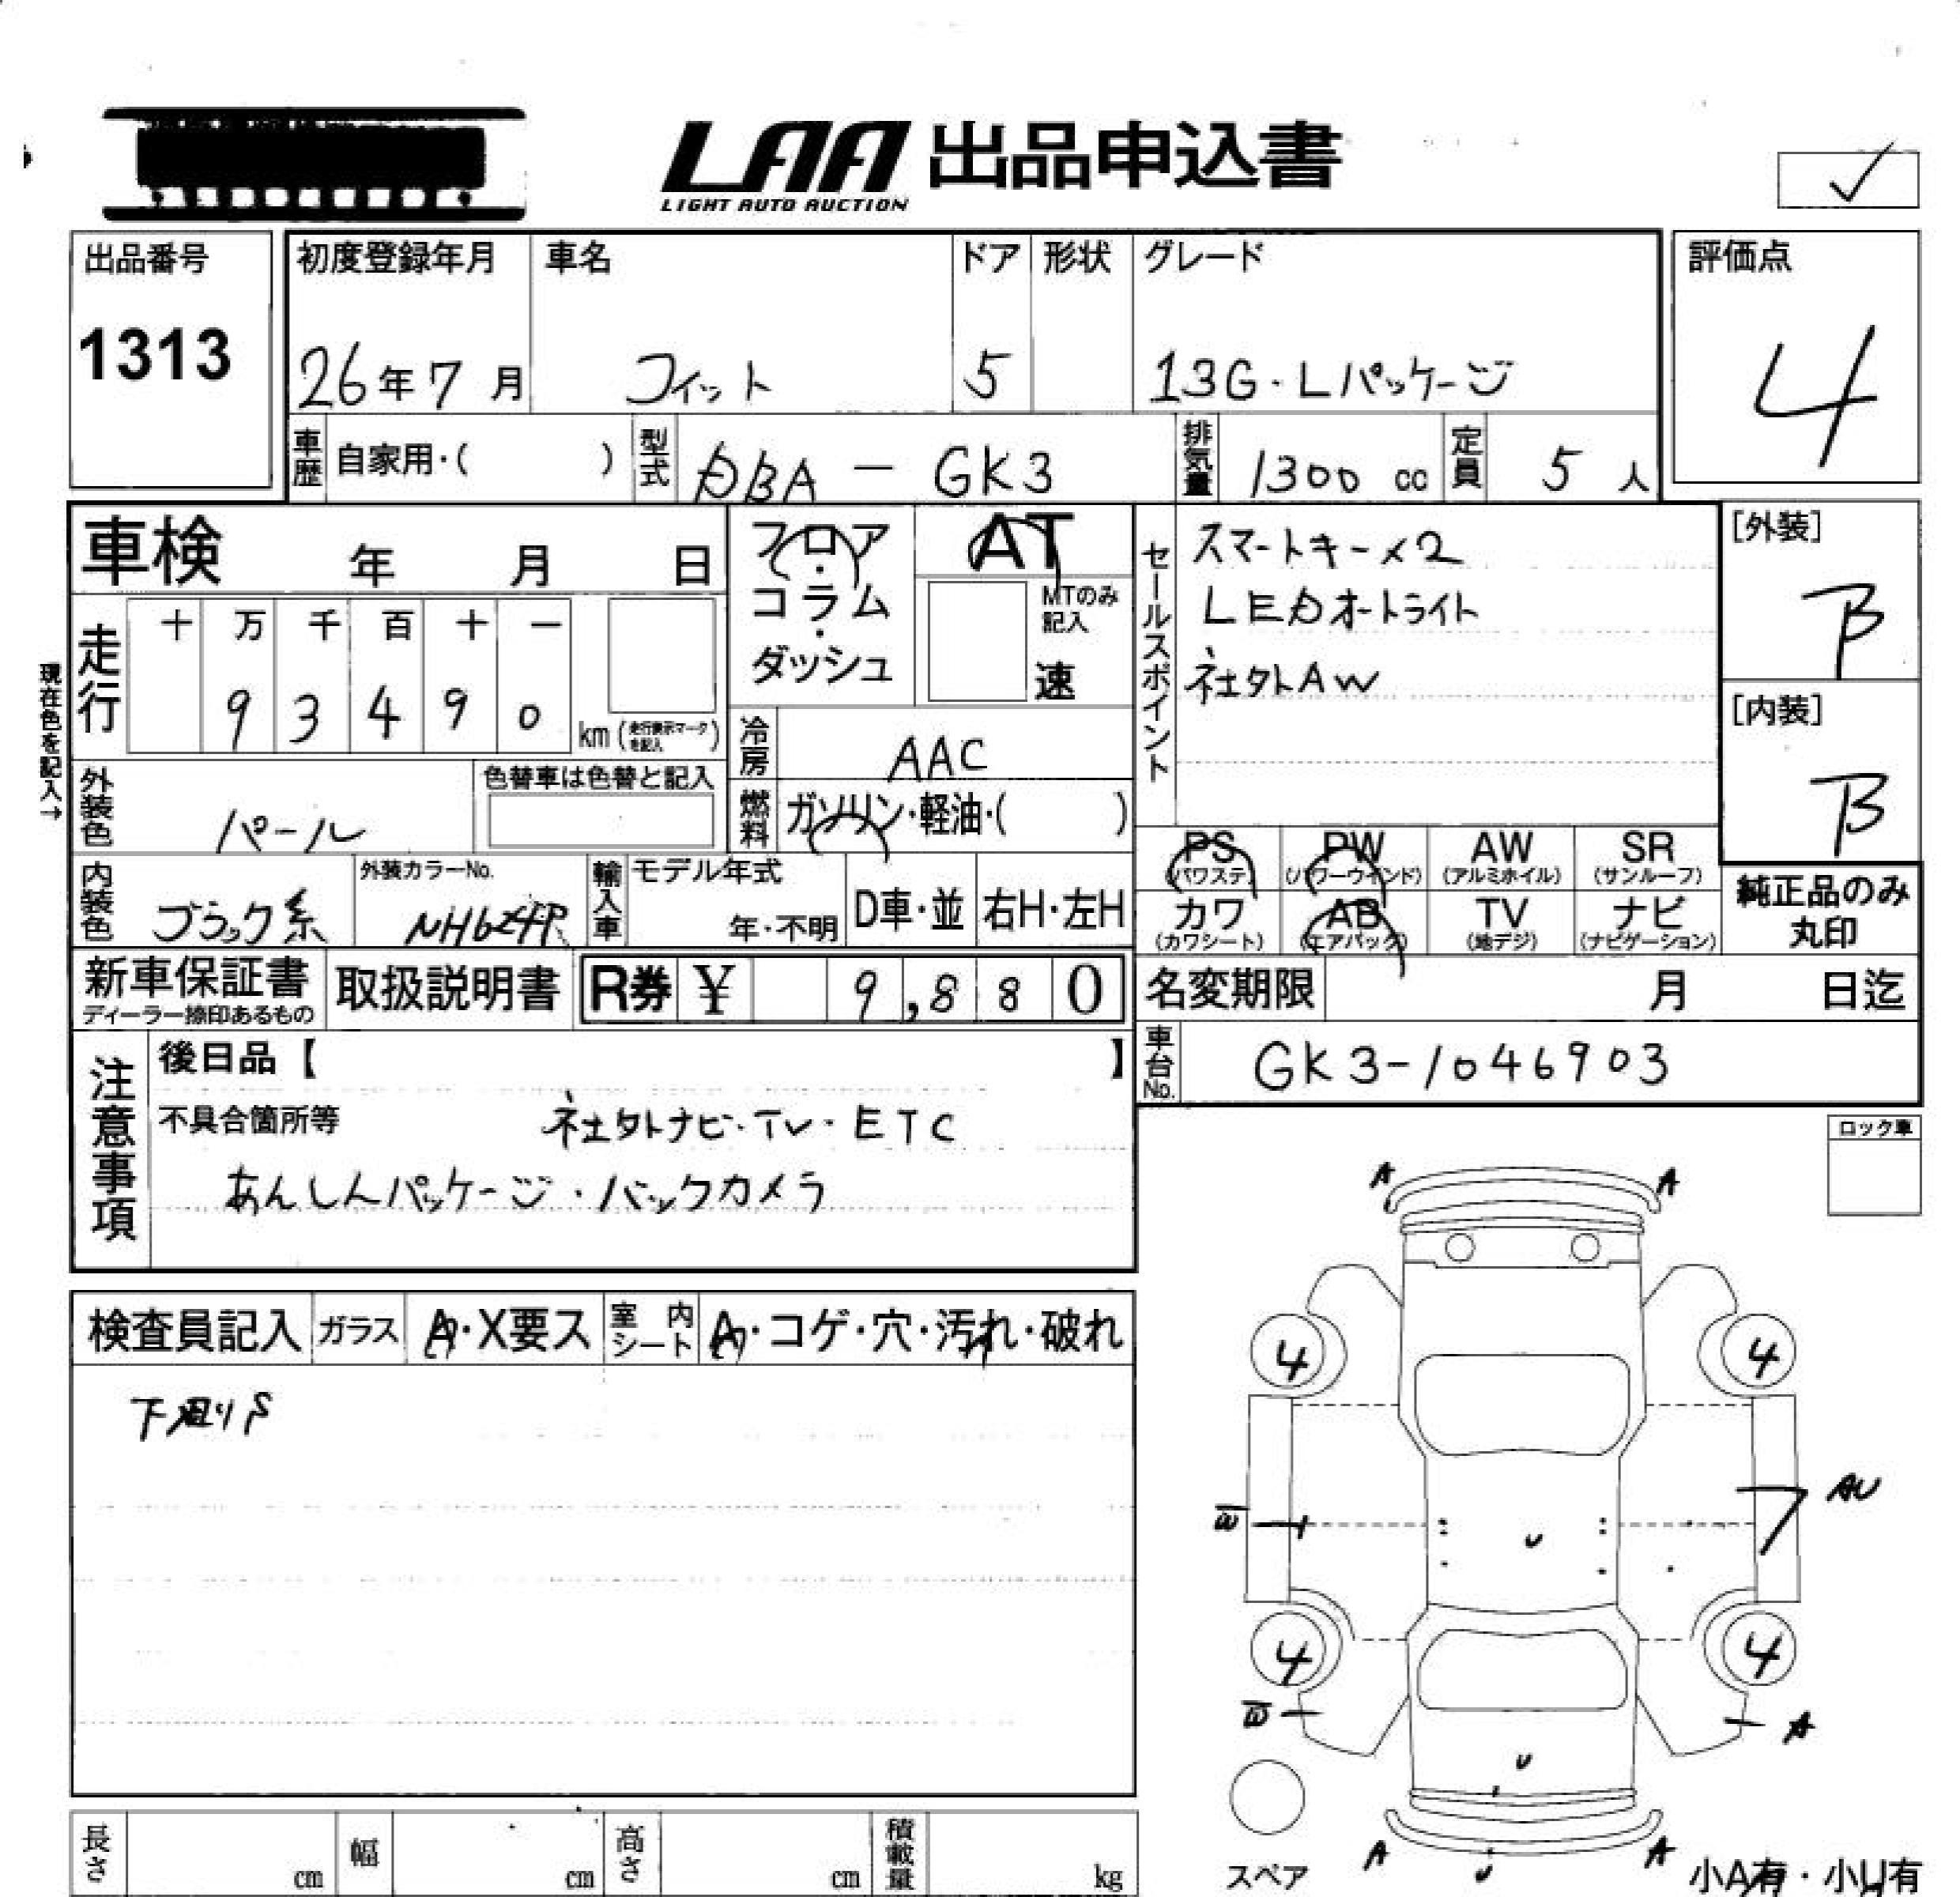 LAA 出品申込書
LIGHT AUTO AUCTION
出品番号 初度登録年月 車名 ドア 形状 グレード 評価点
1313 26年7月 フィット 5 13G・Lパッケージ 4
車歴 自家用・( ) 型式 DBA-GK3 排気量 1300 cc 定員 5 人
車検 年 月 日
フロア・コラム・ダッシュ
AT
MTのみ記入
速
セールスポイント
スマートキー×2
LEDオートライト
社外AW
[外装]
B
[内装]
B
現在色を記入→
走行 十 万 千 百 十 一
9 3 4 9 0 km (走行表示マークを記入)
冷房 AAC
外装色 パール
色替車は色替と記入
燃料 ガソリン・軽油・( )
PS AW SR
PW
(パワステ) (パワーウインド) (アルミホイル) (サンルーフ)
カワ AB TV ナビ
(カワシート) (エアバック) (地デジ) (ナビゲーション)
純正品のみ
丸印
内装色 ブラック系
外装カラーNo.
輸入車 モデル年式
年・不明 D車・並 右H・左H
新車保証書
ディーラー捺印あるもの
取扱説明書
R券 ¥ 9,880
名変期限 月 日迄
車台No. GK3-1046903
注意事項
後日品【 】
不具合箇所等 社外ナビ・TV・ETC
あんしんパッケージ・バックカメラ
ロック車
検査員記入 ガラス A・X要ス 室内シート A・コゲ・穴・汚れ・破れ
下廻りS
A A
4 4
W AU
U
4 4
W A
U
A U A
スペア
小A有・小U有
長さ cm 幅 cm 高さ cm 積載量 kg